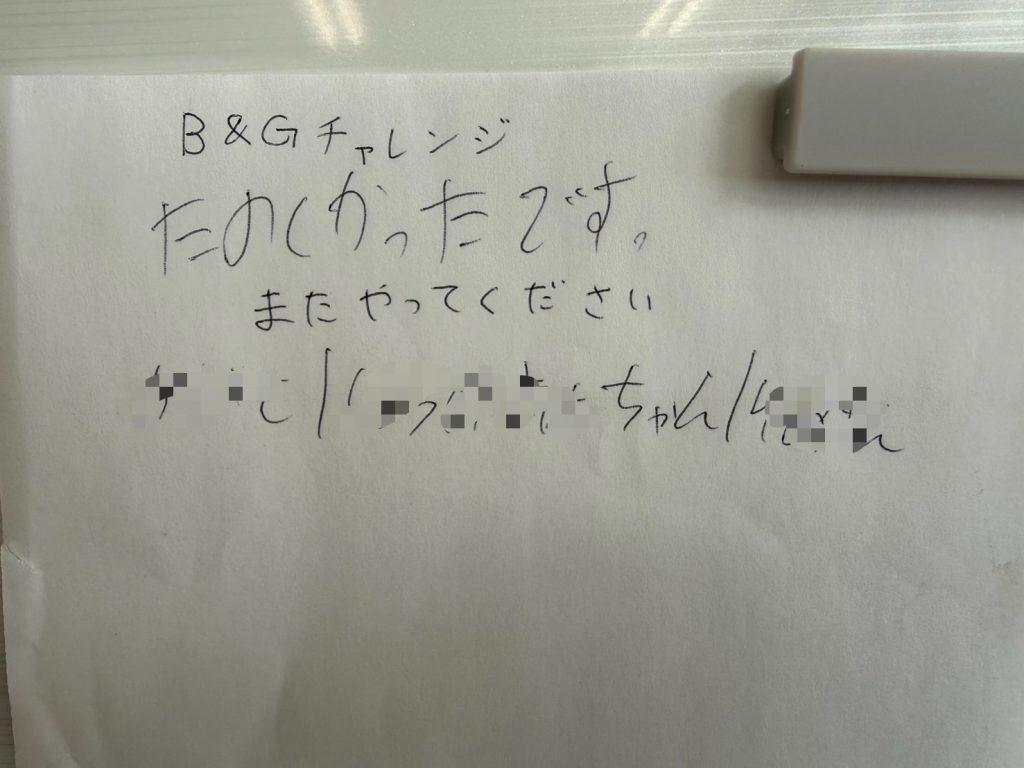 B&Gチャレンジ
たのくかったです。
またやってください
ちゃん